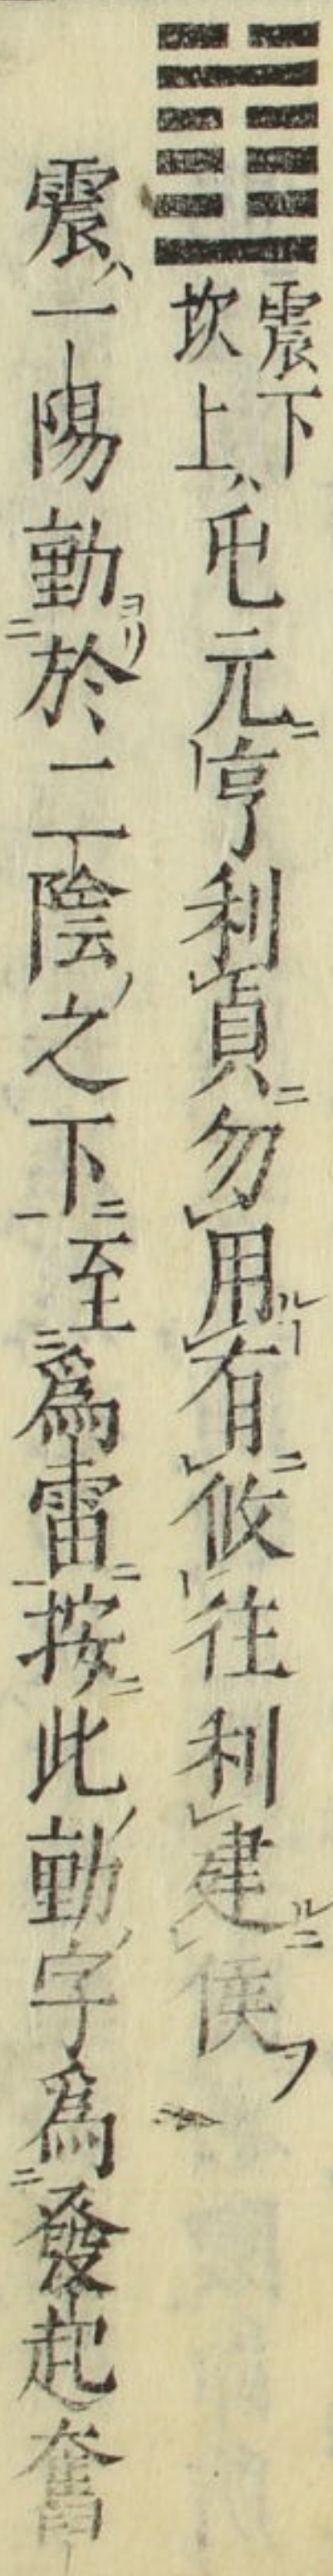 ䷂震下坎上屯元亨利貞勿用有攸往利建侯
震一陽動於二陰之下至爲雷按此動字爲發起奮